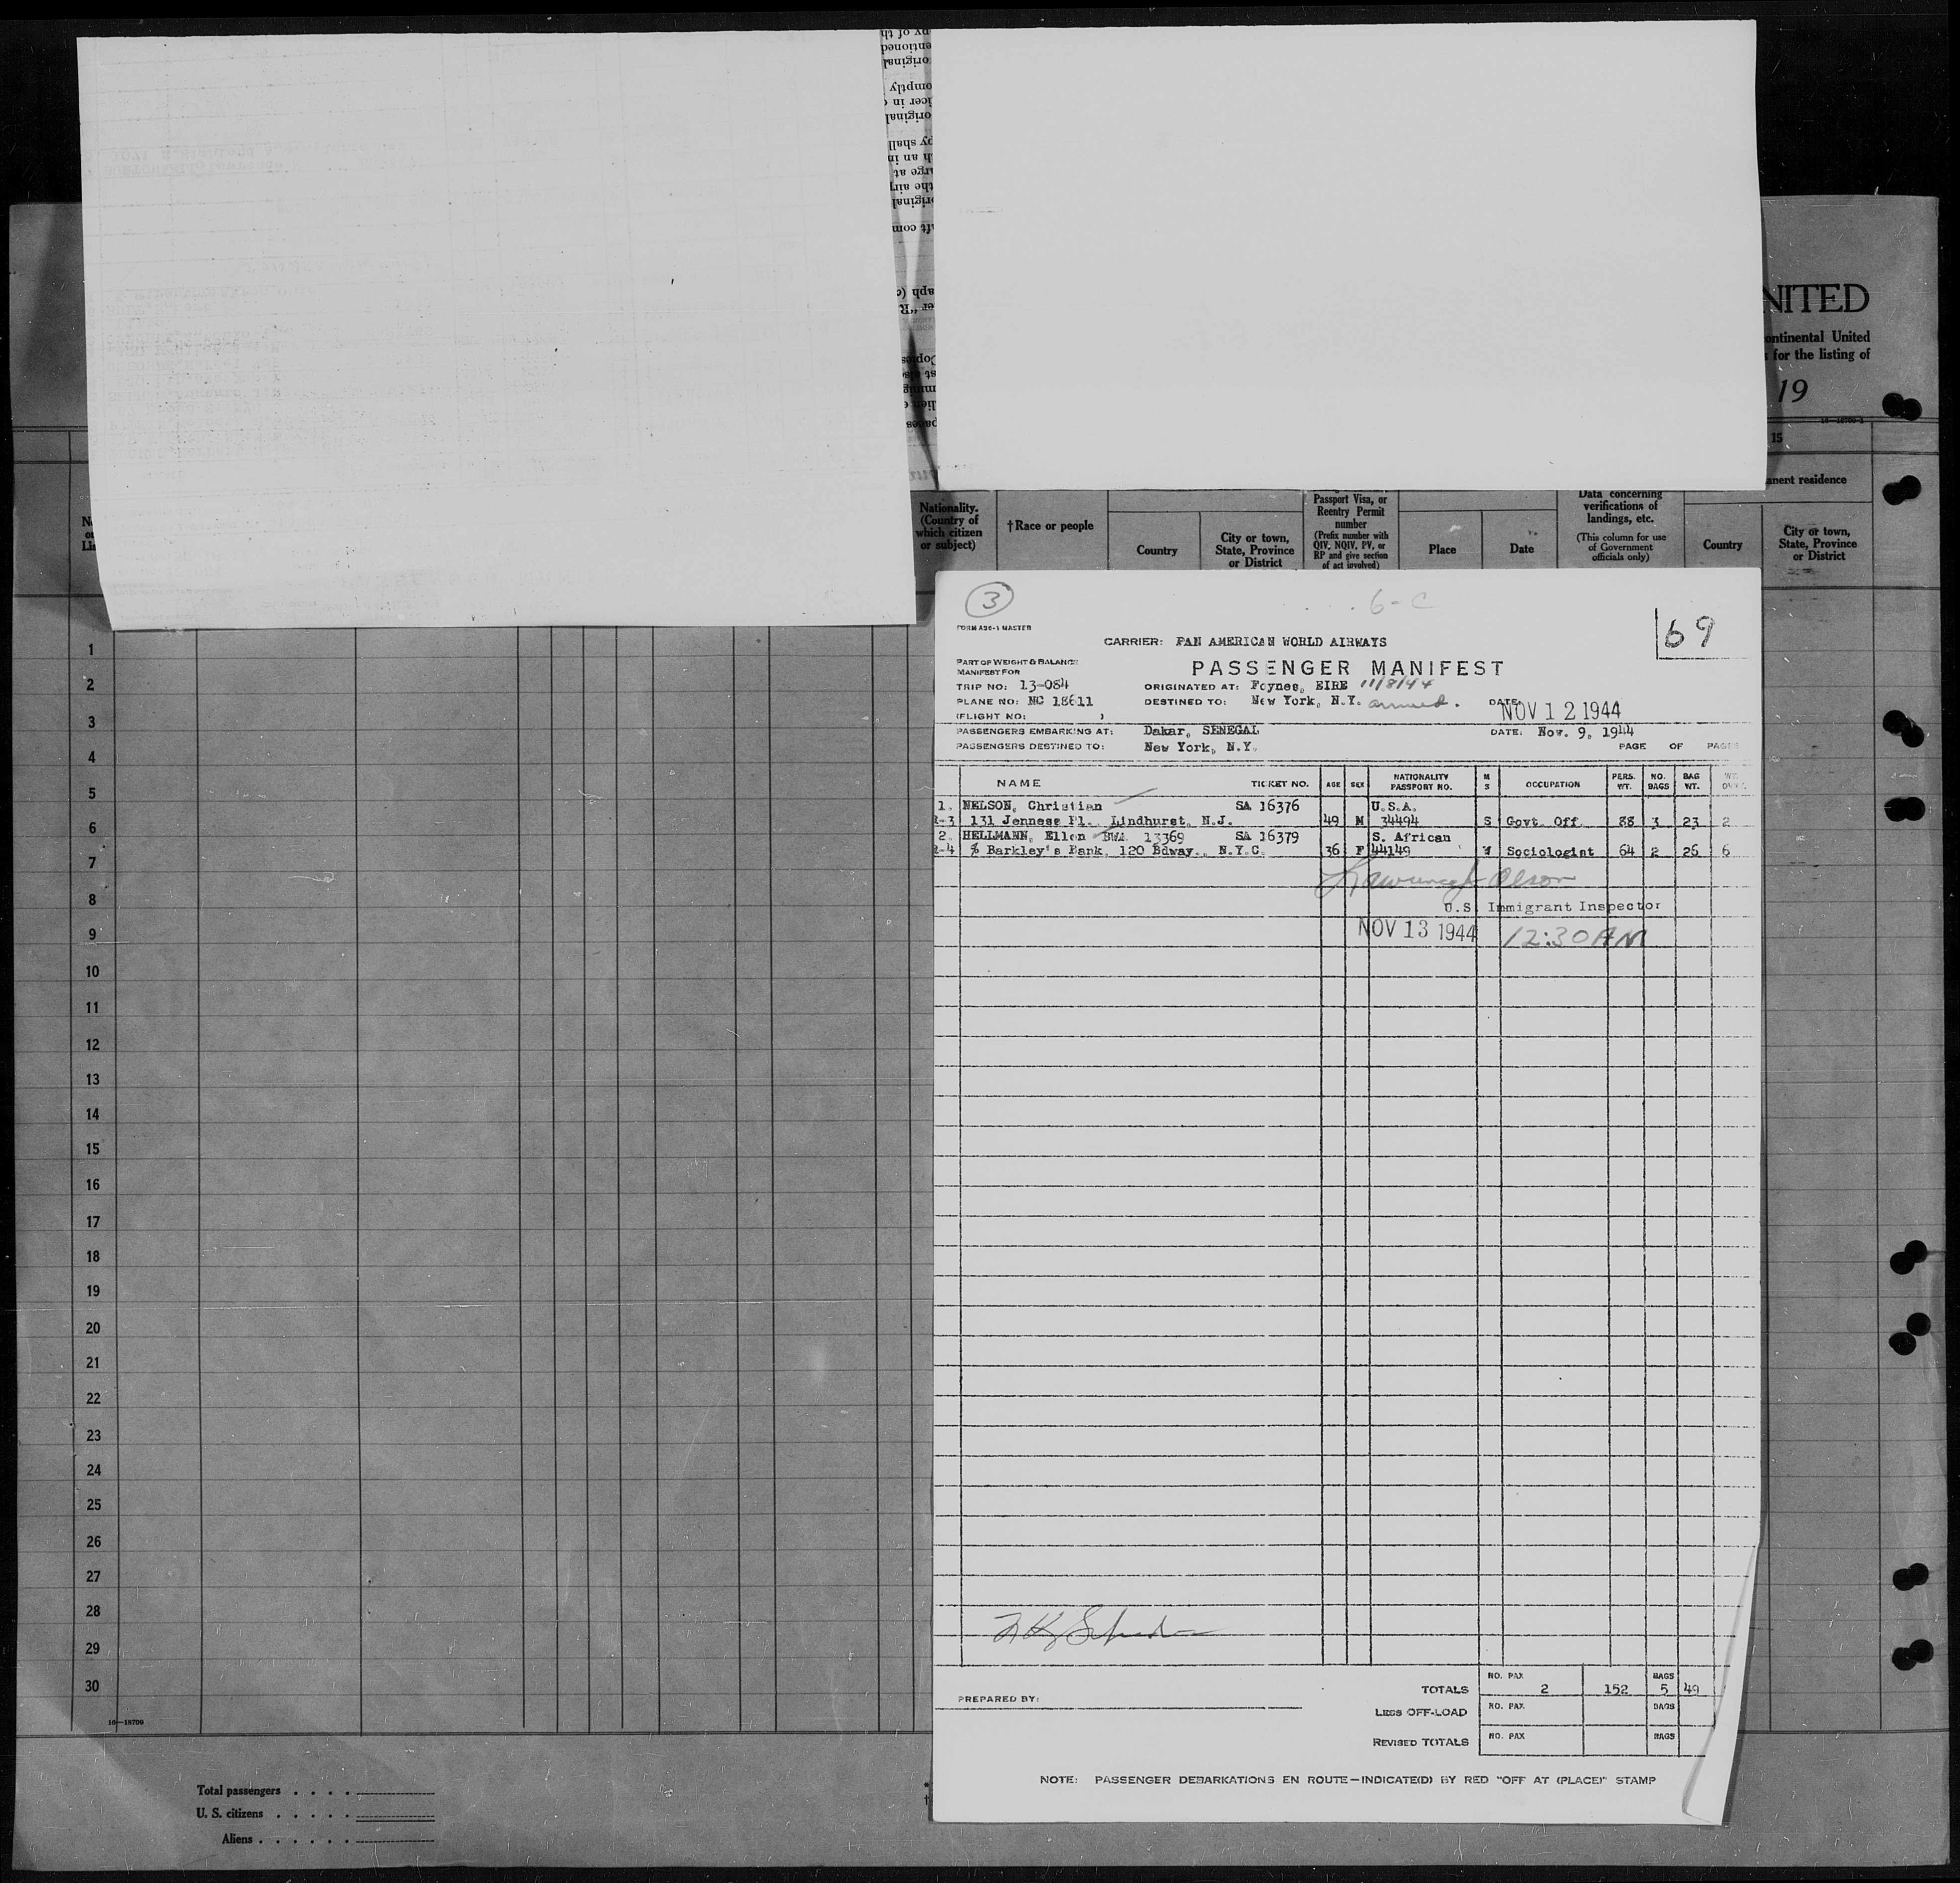 NITED
ontinental United
s for the listing of
19
16—18709-1
15
anent residence
Nationality.
(Country of
which citizen
or subject)
†Race or people
Country
City or town,
State, Province
or District
Passport Visa, or
Reentry Permit
number
(Prefix number with
QIV, NQIV, PV, or
RP and give section
of act involved)
Place
Date
Data concerning
verifications of
landings, etc.
(This column for use
of Government
officials only)
Country
City or town,
State, Province
or District
3
6-C
69
FORM A86-1 MASTER
CARRIER: PAN AMERICAN WORLD AIRWAYS
PART OF WEIGHT & BALANCE
MANIFEST FOR
PASSENGER MANIFEST
TRIP NO: 13-084
ORIGINATED AT: Foynes, EIRE 11/8/44
PLANE NO: NC 18611
DESTINED TO: New York, N.Y. arrived.
DATE: NOV 12 1944
(FLIGHT NO: )
PASSENGERS EMBARKING AT: Dakar, SENEGAL
DATE: Nov. 9, 1944
PASSENGERS DESTINED TO: New York, N.Y.
PAGE OF PAGES
NAME TICKET NO. AGE SEX NATIONALITY PASSPORT NO. M S OCCUPATION PERS. WT. NO. BAGS BAG WT.
1. NELSON, Christian SA 16376 U.S.A.
R-3 131 Jenness Pl. Lindhurst, N.J. 49 M 34494 S Govt. Off. 88 3 23 2
2. HELLMANN, Ellen BWA 13369 SA 16379 S. African
R-4 % Barkley's Bank, 120 Bdway., N.Y.C. 36 F 44149 Sociologist 64 2 26 6
Olson
U.S. Immigrant Inspector
NOV 13 1944 12:30 AM
1
2
3
4
5
6
7
8
9
10
11
12
13
14
15
16
17
18
19
20
21
22
23
24
25
26
27
28
29
30
16—18709
TOTALS NO. PAX 2 152 BAGS 5 49
PREPARED BY:
LESS OFF-LOAD NO. PAX BAGS
REVISED TOTALS NO. PAX BAGS
NOTE: PASSENGER DEBARKATIONS EN ROUTE—INDICATE(D) BY RED "OFF AT (PLACE)" STAMP
Total passengers
U. S. citizens
Aliens